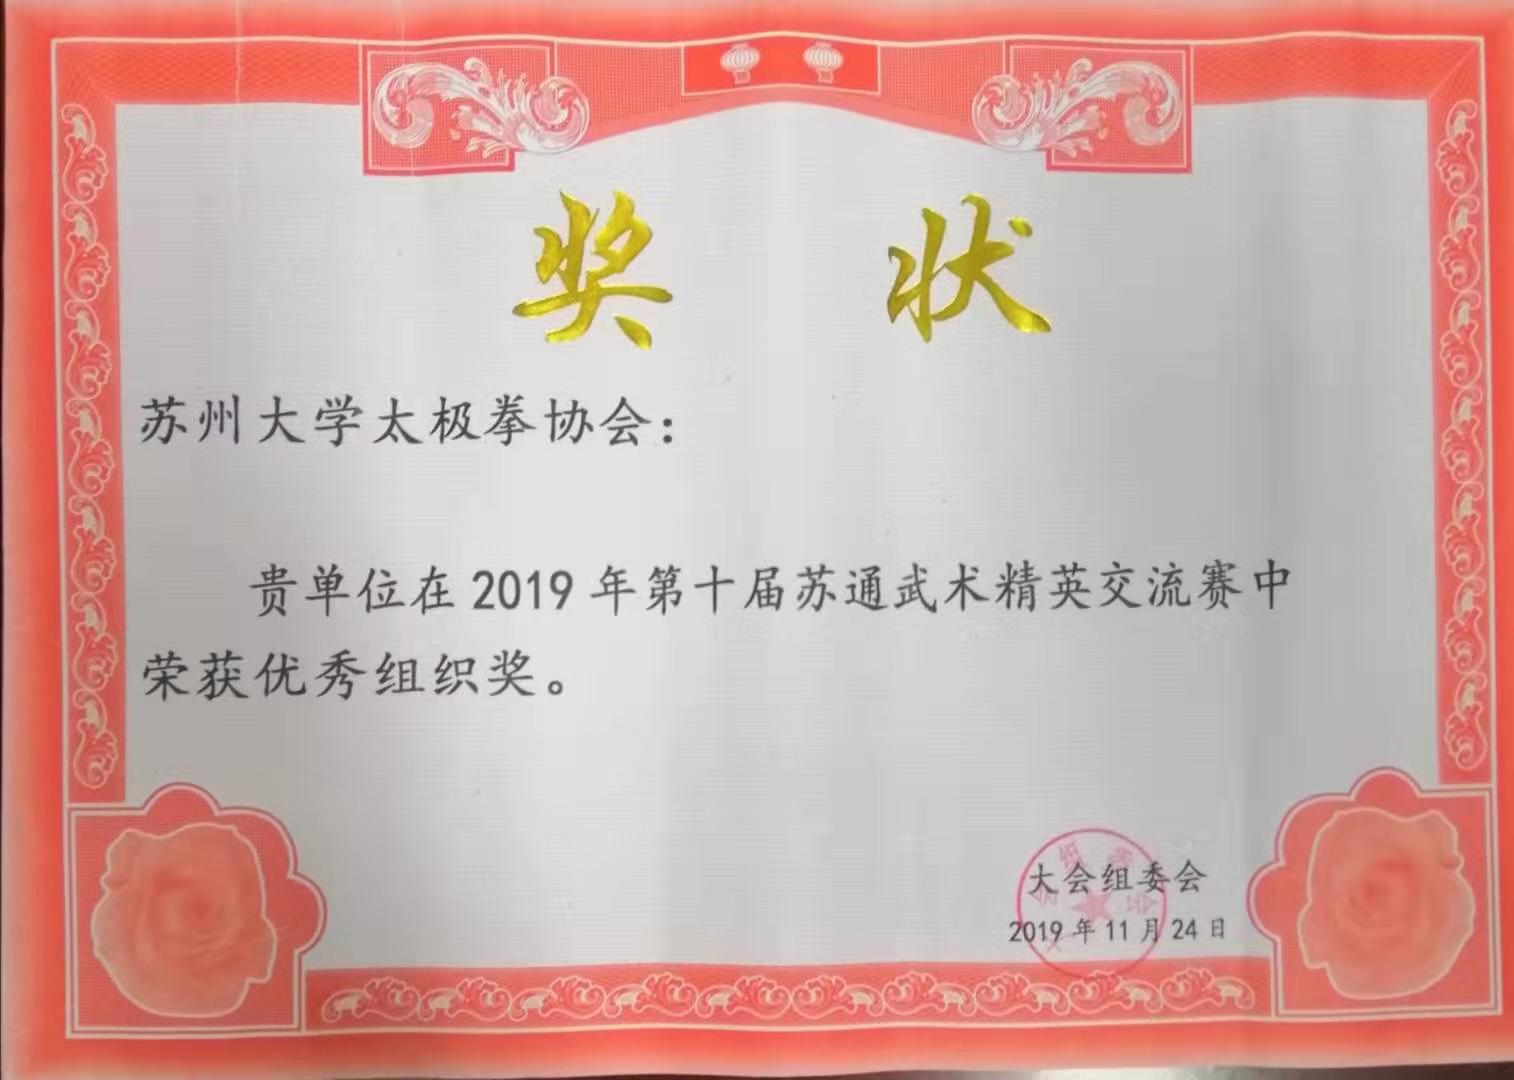 奖状
苏州大学太极拳协会：
贵单位在2019年第十届苏通武术精英交流赛中
荣获优秀组织奖。
大会组委会
2019年11月24日